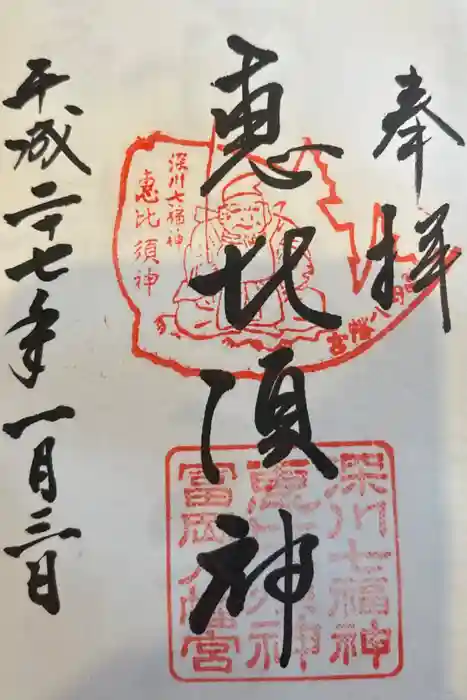 奉拝
恵比須神
平成二十七年一月三日
深川七福神
恵比須神
深川七福神
恵比須神
富岡八幡宮